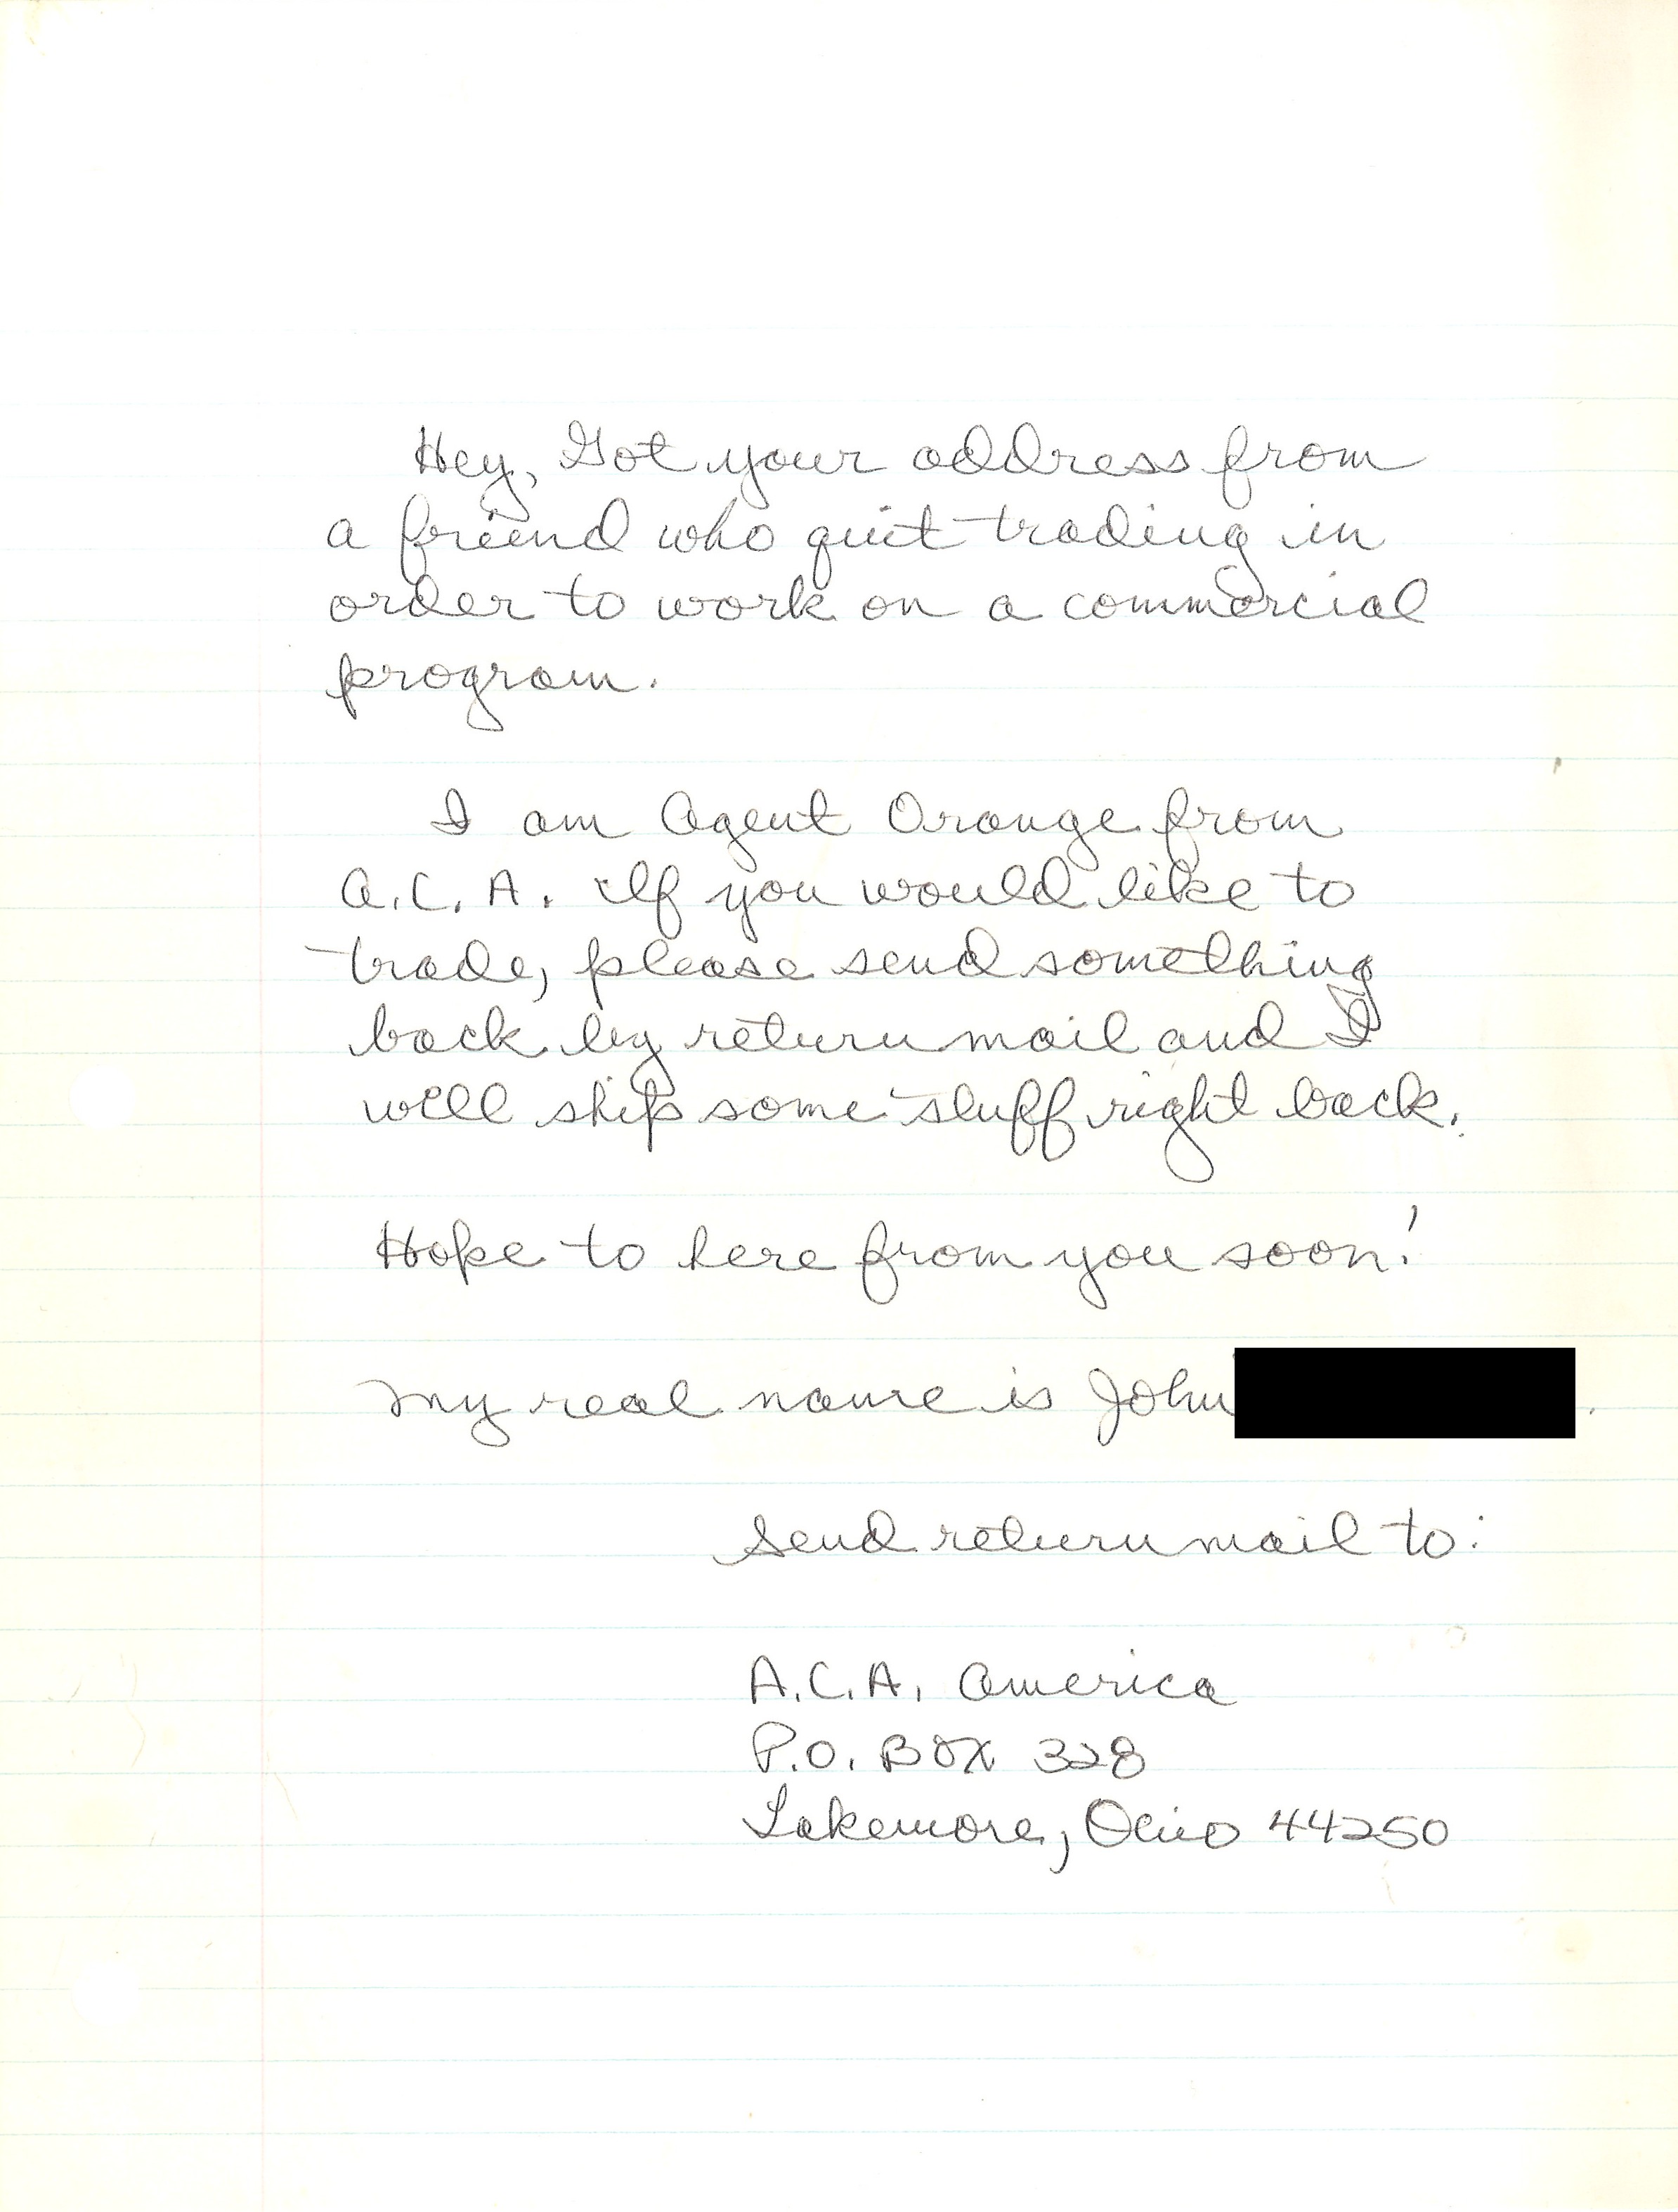 Hey, Got your address from
a friend who quit trading in
order to work on a commercial
program.
I am Agent Orange from
A.C.A. If you would like to
trade, please send something
back by return mail and I
will ship some stuff right back.
Hope to here from you soon!
My real name is John
Send return mail to:
A.C.A. America
P.O. BOX 328
Lakemore, Ohio 44250